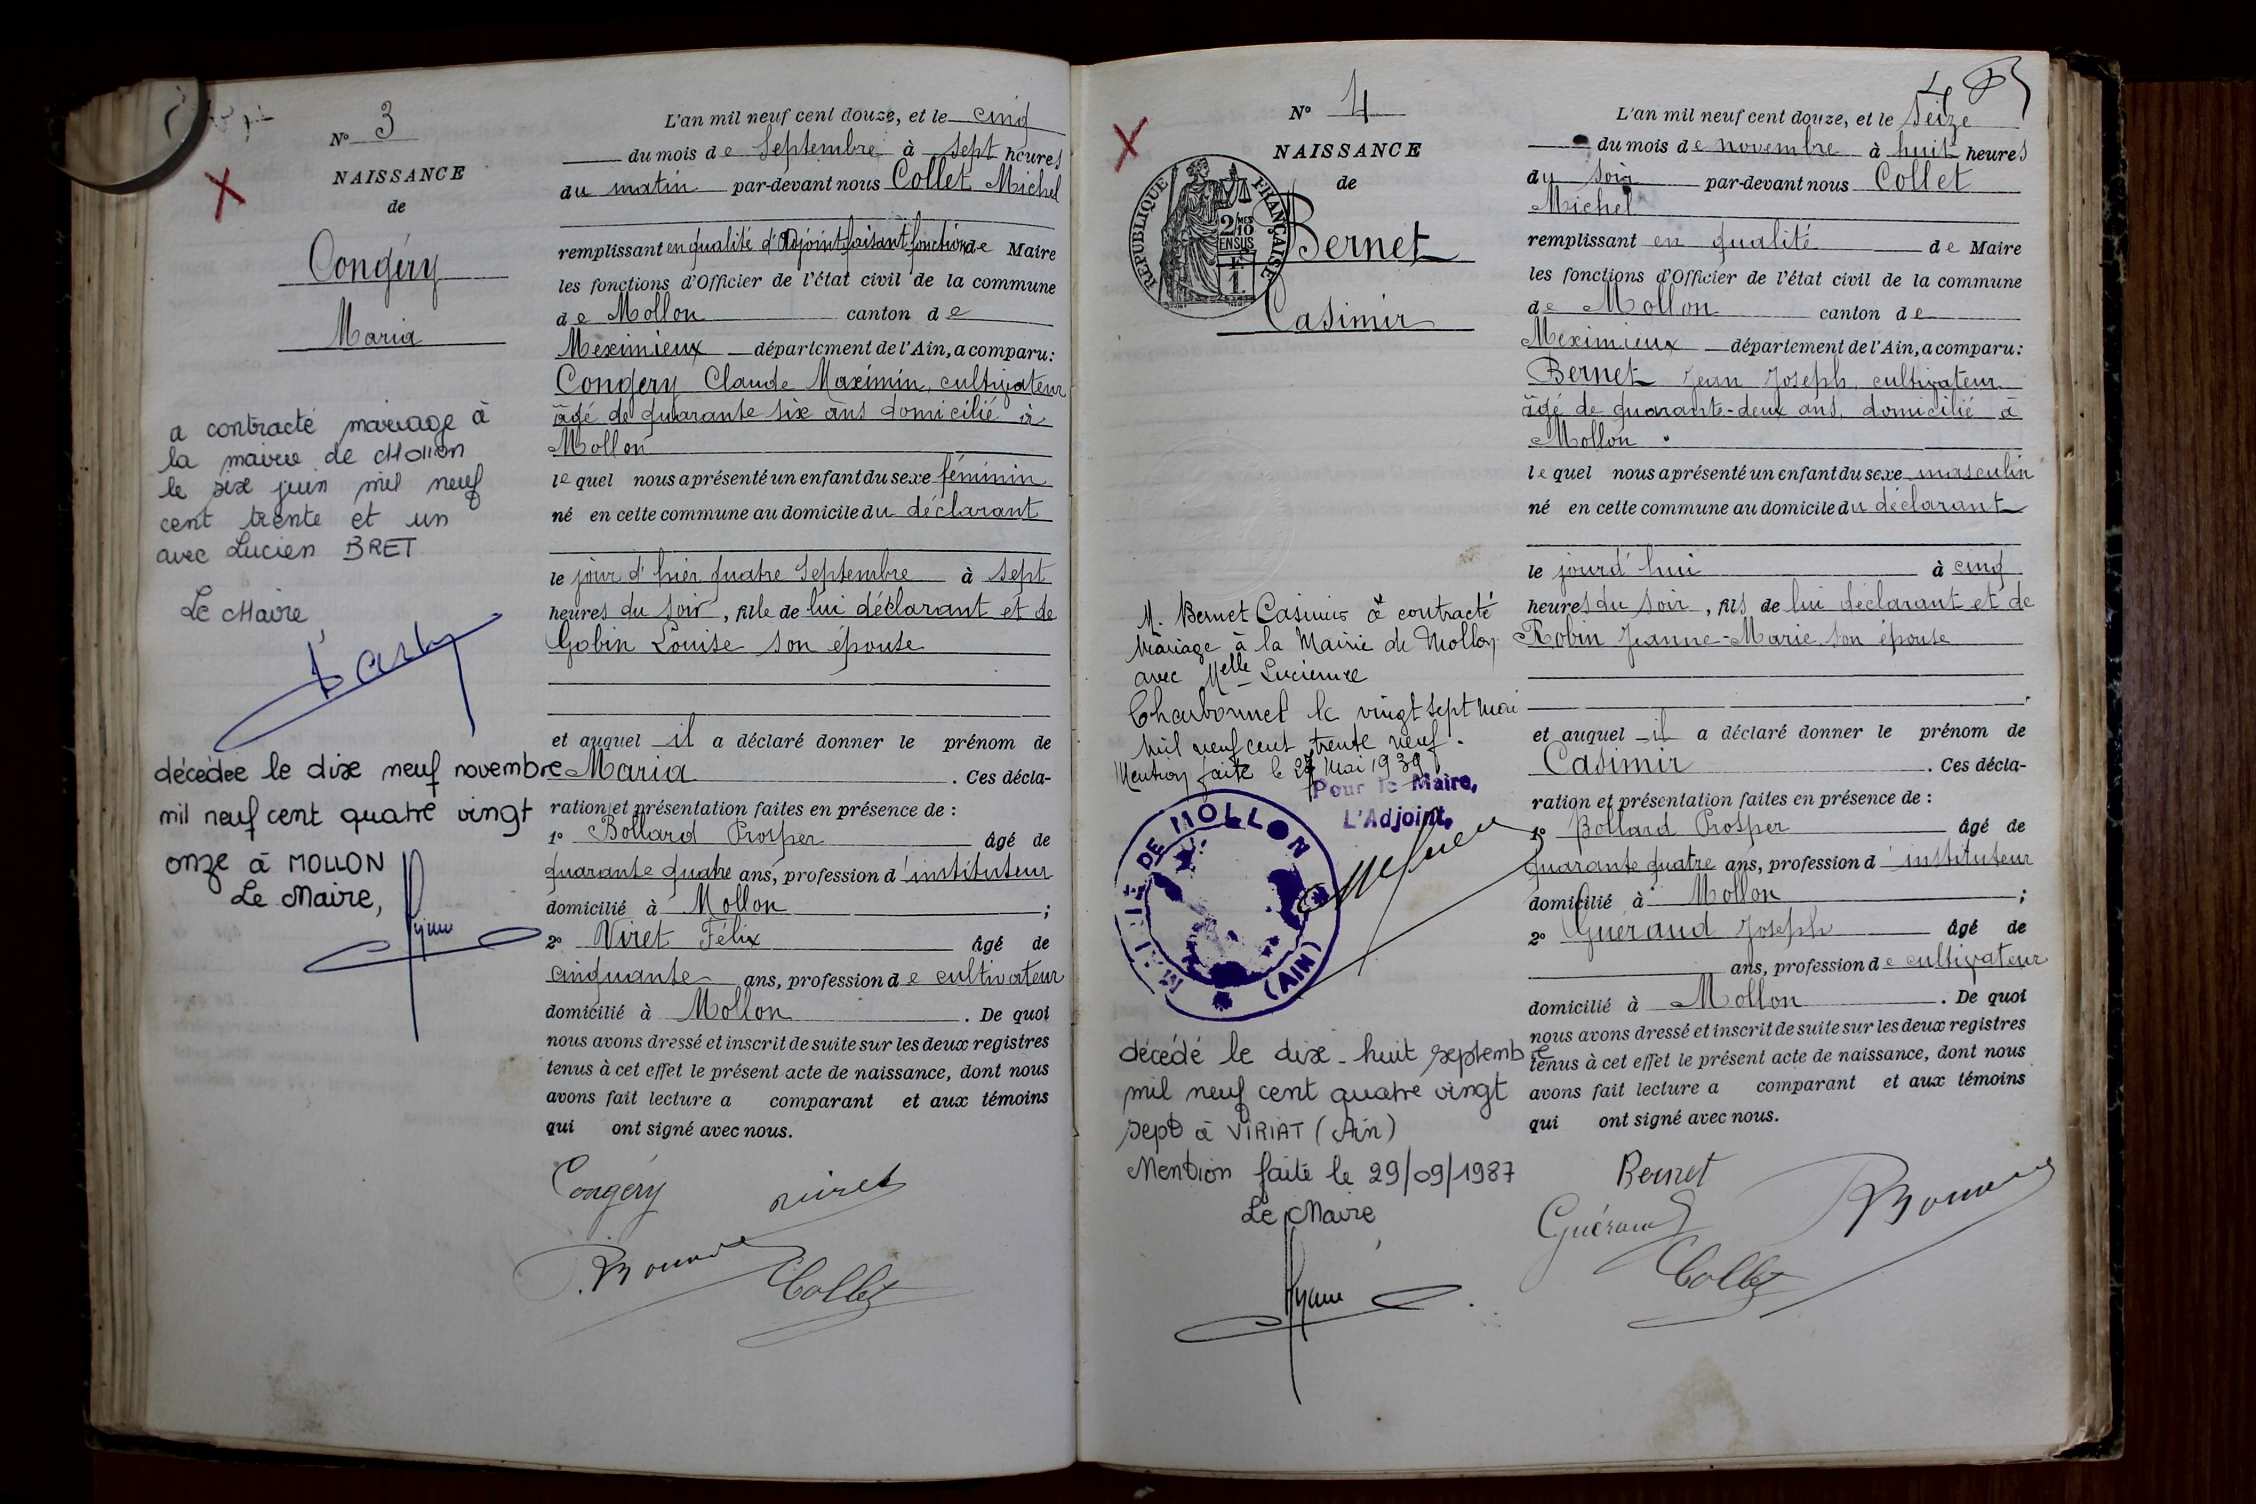 N° 3
NAISSANCE
de
Congéry
Maria
a contracté mariage à
la mairie de Mollon
le six juin mil neuf
cent trente et un
avec Lucien BRET
Le Maire
décédée le dix neuf novembre
mil neuf cent quatre vingt
onze à MOLLON
Le Maire,
L'an mil neuf cent douze, et le cinq
du mois de Septembre à sept heures
du matin par-devant nous Collet Michel
remplissant en qualité d'Adjoint faisant fonction de Maire
les fonctions d'Officier de l'état civil de la commune
de Mollon canton de
Meximieux département de l'Ain, a comparu:
Congery Claude Maximin, cultivateur
âgé de quarante six ans domicilié à
Mollon
lequel nous a présenté un enfant du sexe féminin
né en cette commune au domicile du déclarant
le jour d'hier quatre Septembre à sept
heures du soir, fille de lui déclarant et de
Gobin Louise son épouse
et auquel il a déclaré donner le prénom de
Maria. Ces décla-
ration et présentation faites en présence de :
1° Bollard Prosper âgé de
quarante quatre ans, profession d'instituteur
domicilié à Mollon ;
2° Viret Félix âgé de
cinquante ans, profession de cultivateur
domicilié à Mollon. De quoi
nous avons dressé et inscrit de suite sur les deux registres
tenus à cet effet le présent acte de naissance, dont nous
avons fait lecture a comparant et aux témoins
qui ont signé avec nous.
Congéry viret
Collet
4
N° 4
NAISSANCE
de
RÉPUBLIQUE FRANÇAISE
2/10 MES
EN SUS
Bernet
Casimir
M. Bernet Casimir a contracté
mariage à la Mairie de Mollon
avec Melle Lucienne
Charbonnel le vingt sept mai
mil neuf cent trente neuf.
Mention faite le 27 Mai 1939
Pour le Maire,
L'Adjoint,
MAIRIE DE MOLLON
(AIN)
décédé le dix-huit septembre
mil neuf cent quatre vingt
sept à VIRIAT (Ain)
Mention faite le 29/09/1987
Le Maire
L'an mil neuf cent douze, et le Seize
du mois de novembre à huit heures
du soir par-devant nous Collet
Michel
remplissant en qualité de Maire
les fonctions d'Officier de l'état civil de la commune
de Mollon canton de
Meximieux département de l'Ain, a comparu:
Bernet Jean Joseph, cultivateur
âgé de quarante-deux ans, domicilié à
Mollon
lequel nous a présenté un enfant du sexe masculin
né en cette commune au domicile du déclarant
le jourd'hui à cinq
heures du soir, fils de lui déclarant et de
Robin Jeanne-Marie son épouse
et auquel il a déclaré donner le prénom de
Casimir. Ces décla-
ration et présentation faites en présence de :
1° Bollard Prosper âgé de
quarante quatre ans, profession d'instituteur
domicilié à Mollon ;
2° Guéraud Joseph âgé de
ans, profession de cultivateur
domicilié à Mollon. De quoi
nous avons dressé et inscrit de suite sur les deux registres
tenus à cet effet le présent acte de naissance, dont nous
avons fait lecture a comparant et aux témoins
qui ont signé avec nous.
Bernet
Guéraud
Collet